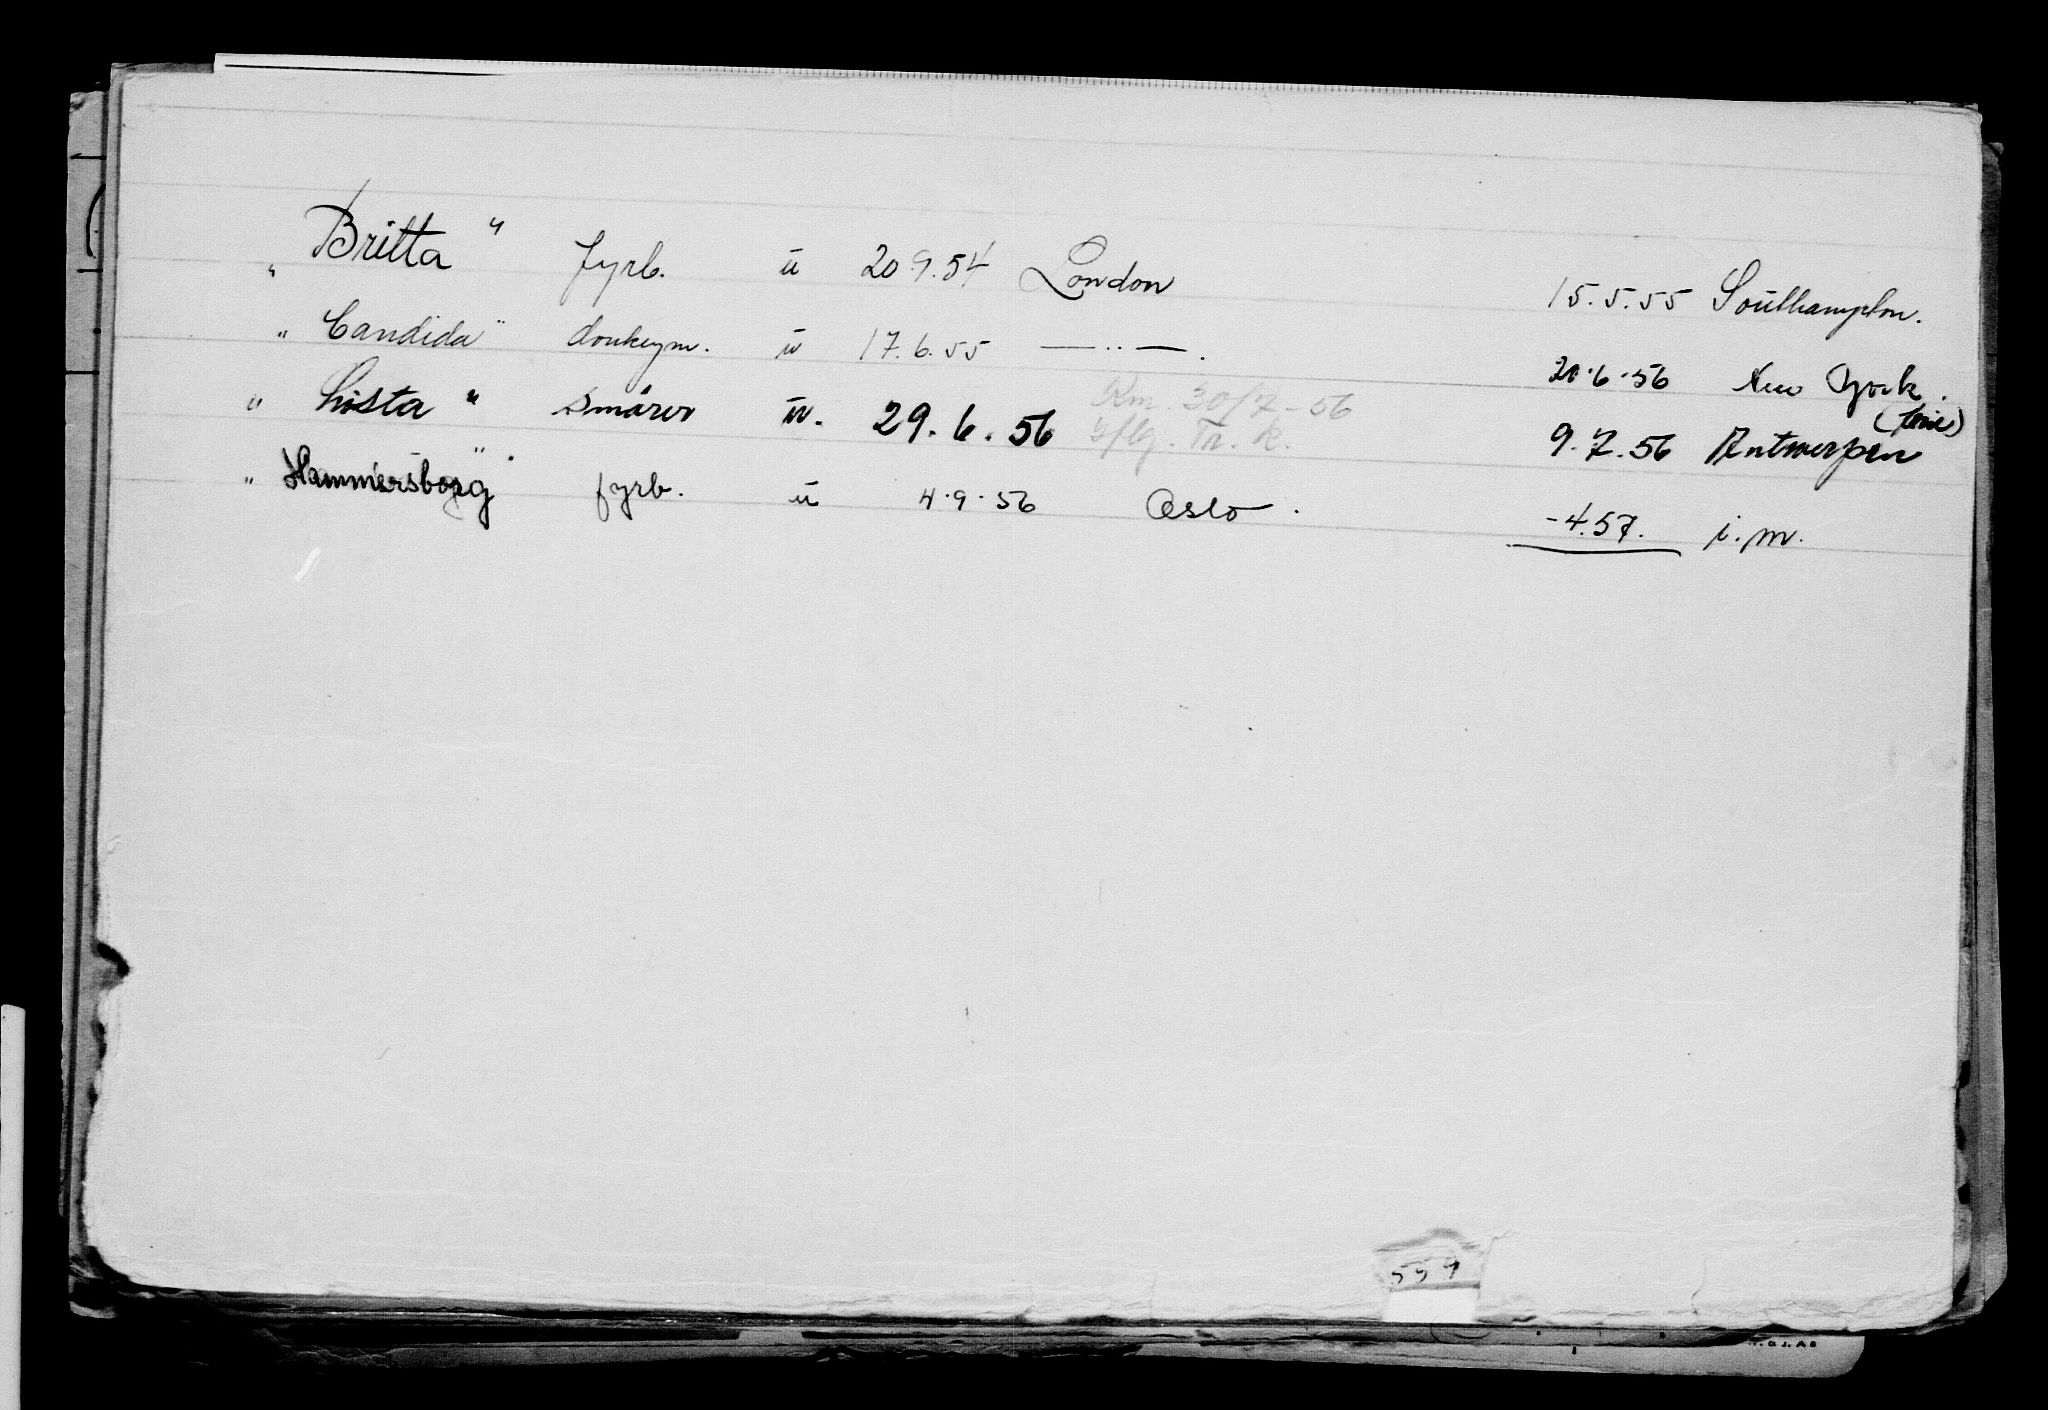 „ Britta “ fyrb. u 20.9.54 London 15.5.55 Southampton.
„ Candida “ donkeym. u 17.6.55 — „ —. 20.6.56 New York.
„ Lista “ smører u. 29.6.56 Rm. 30/7-56 9.7.56 Antwerpen
Tr. K.
„ Hammersborg “ fyrb. u 4.9.56 Oslo. -4.57. i.m.
559